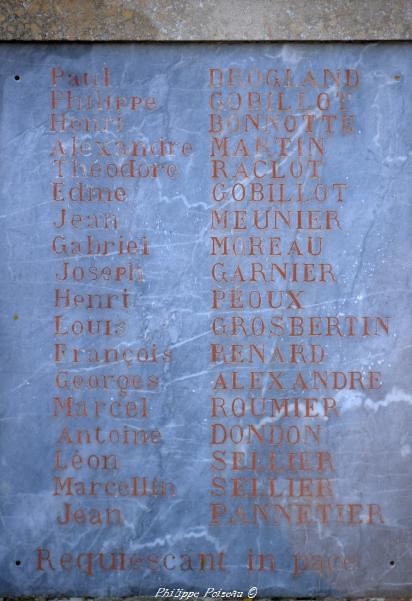 Paul DROGLAND
Philippe GOBILLOT
Henri BONNOTTE
Alexandre MARTIN
Théodore RACLOT
Edme GOBILLOT
Jean MEUNIER
Gabriel MOREAU
Joseph GARNIER
Henri PEOUX
Louis GROSBERTIN
François RENARD
Georges ALEXANDRE
Marcel ROUMIER
Antoine DONDON
Léon SELLIER
Marcellin SELLIER
Jean PANNETIER
Requiescant in pace
Philippe Poiseau ©